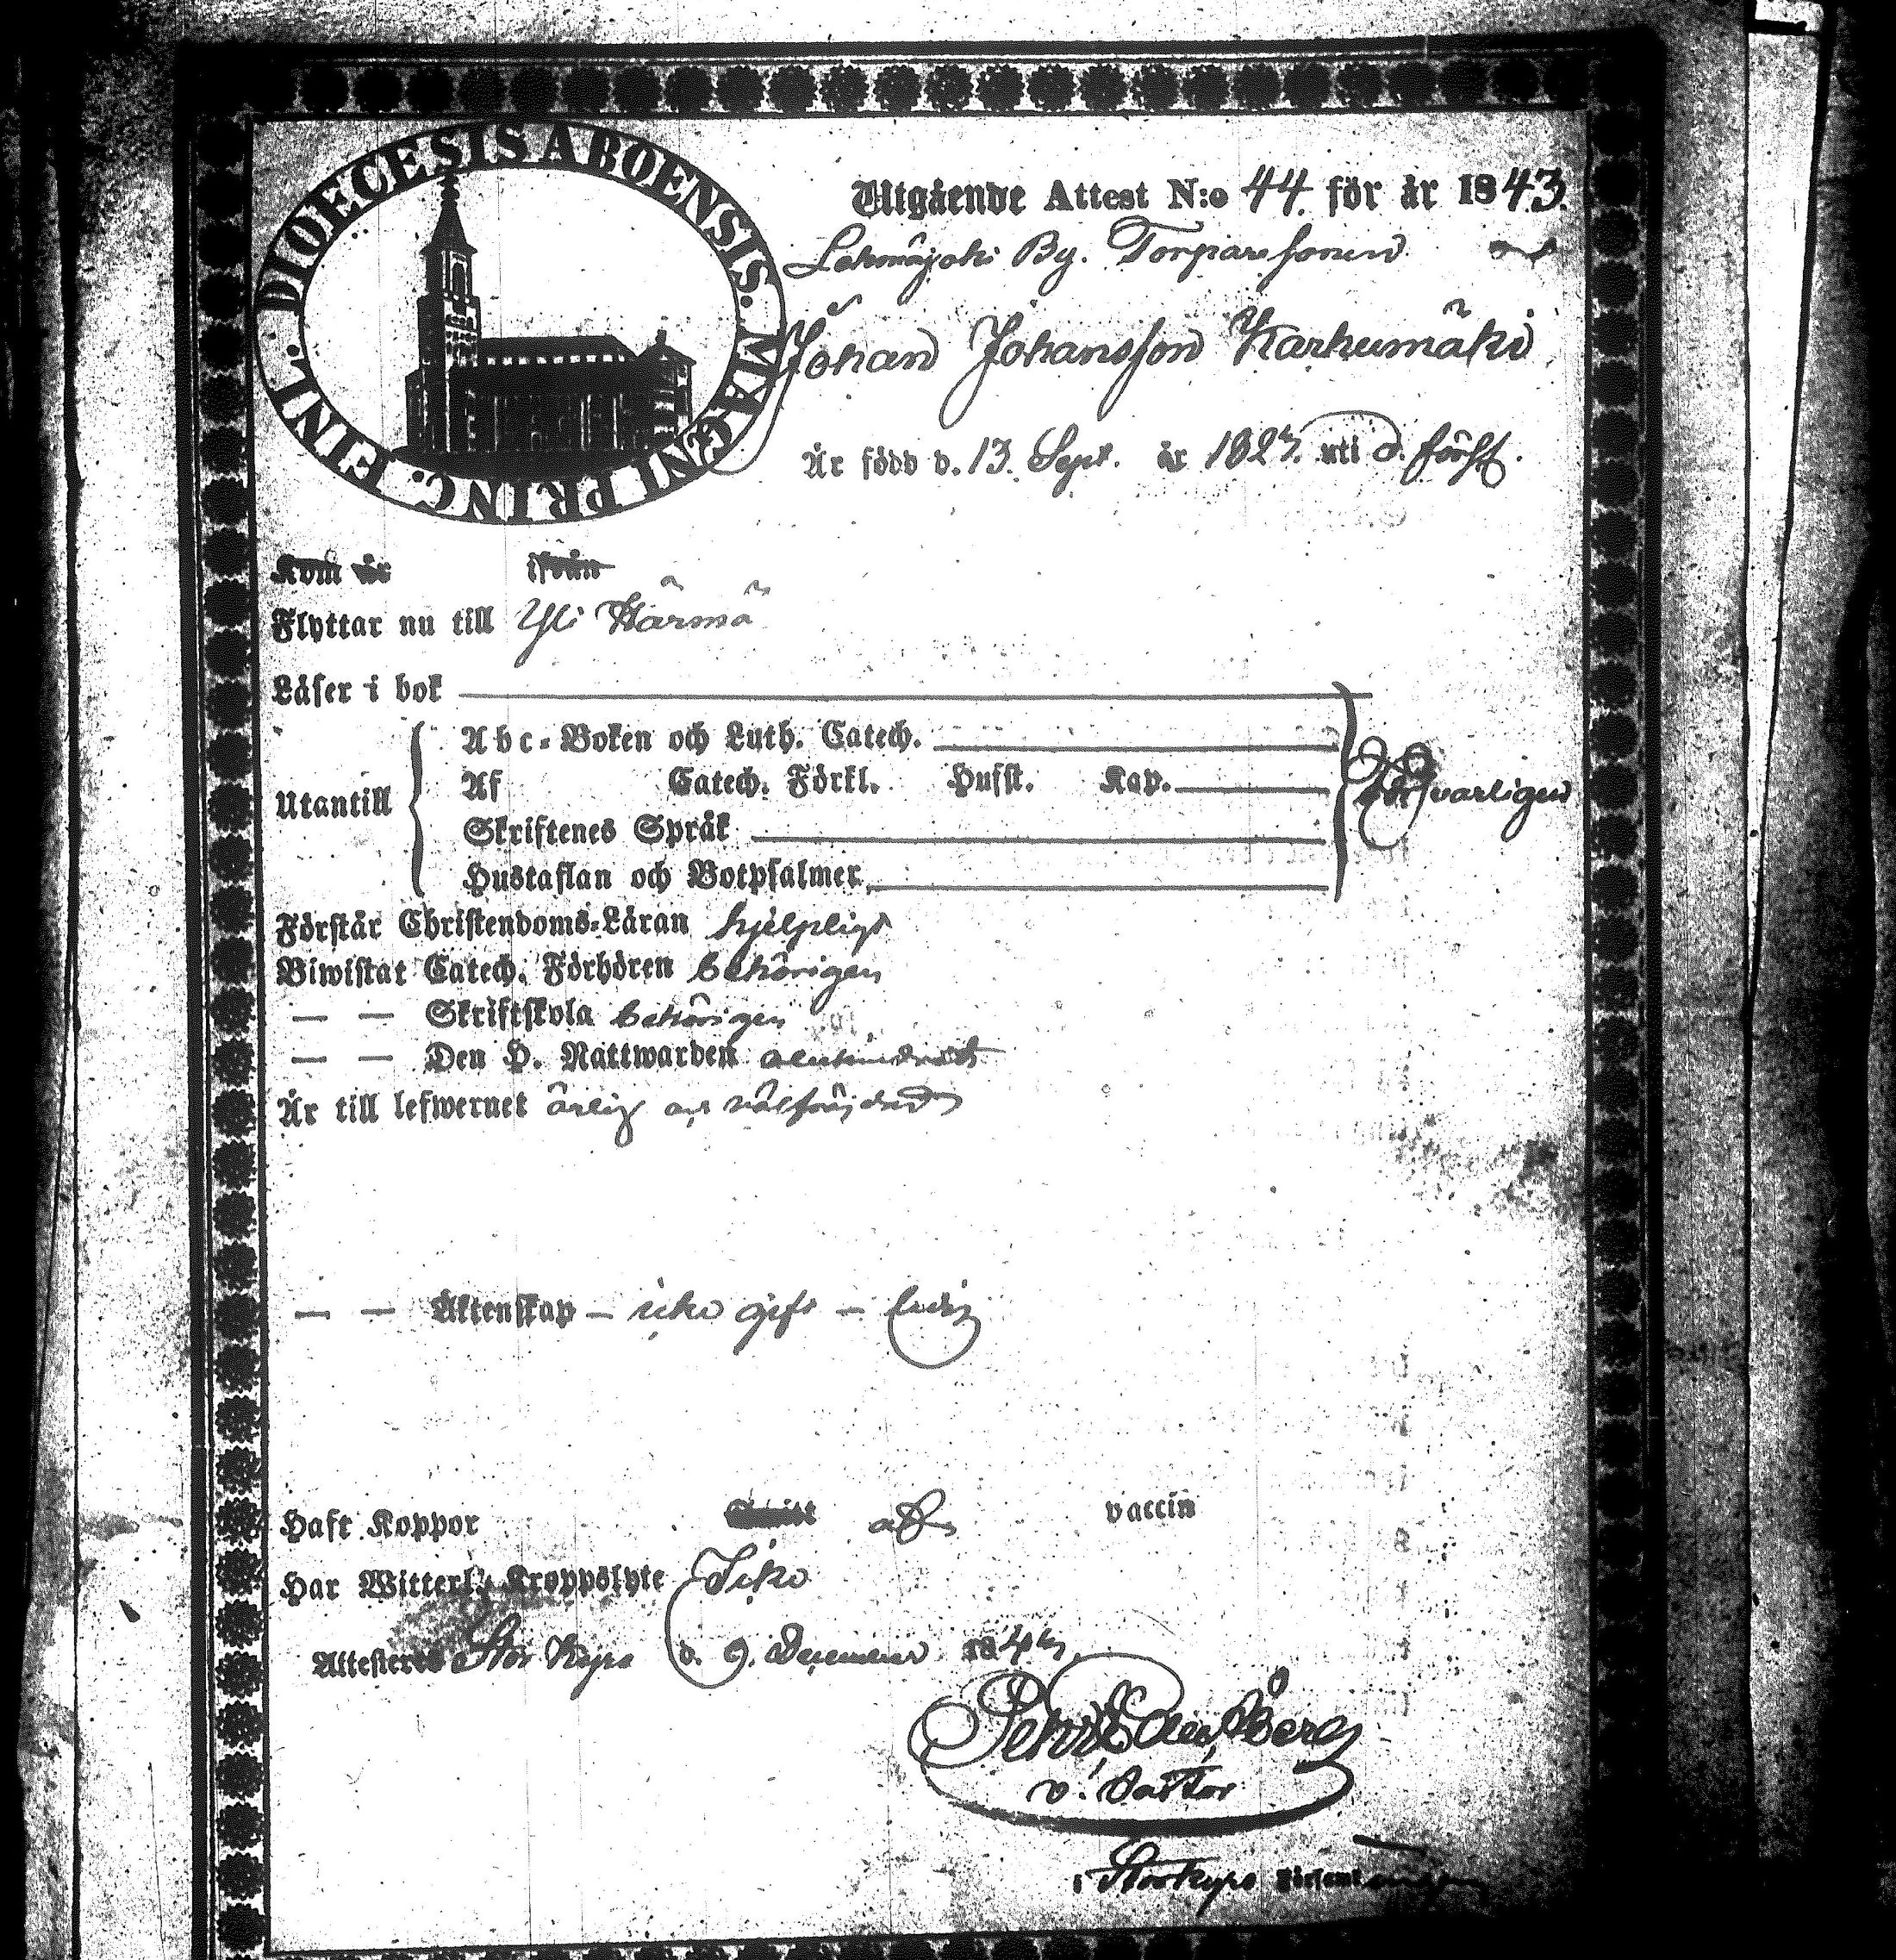 DIOECESIS ABOENSIS. MAGNI PRINC. FINL.
Utgående Attest N:o 44. för år 1843.
By. Torpare sonen
Johan Johansson Karhumäki
Är född d. 13. Sept. år 1823. uti d. förs.
Kom år ifrån
Flyttar nu till Yli Härmä
Läser i bok
Utantill
Abc-Boken och Luth. Catech.
Af Catech. Förkl. Husst. Kap.
försvarligen
Skriftenes Språk
Hustaflan och Botpsalmer
Förstår Christendoms-Läran hjelpligt
Biwistat Catech. Förhören behörigen
— — Skriftskola behörigen
— — Den H. Nattwarden
Är till lefwernet ärlig och välfräjdad
— — Äktenskap — icke gift — ledig
Haft Koppor vaccin
Har Witterl. Kroppslyte Icke
Attesteras Stor Kyro d. 9. December 1843.
Berg
v. Pastor
i Storkyro Församling